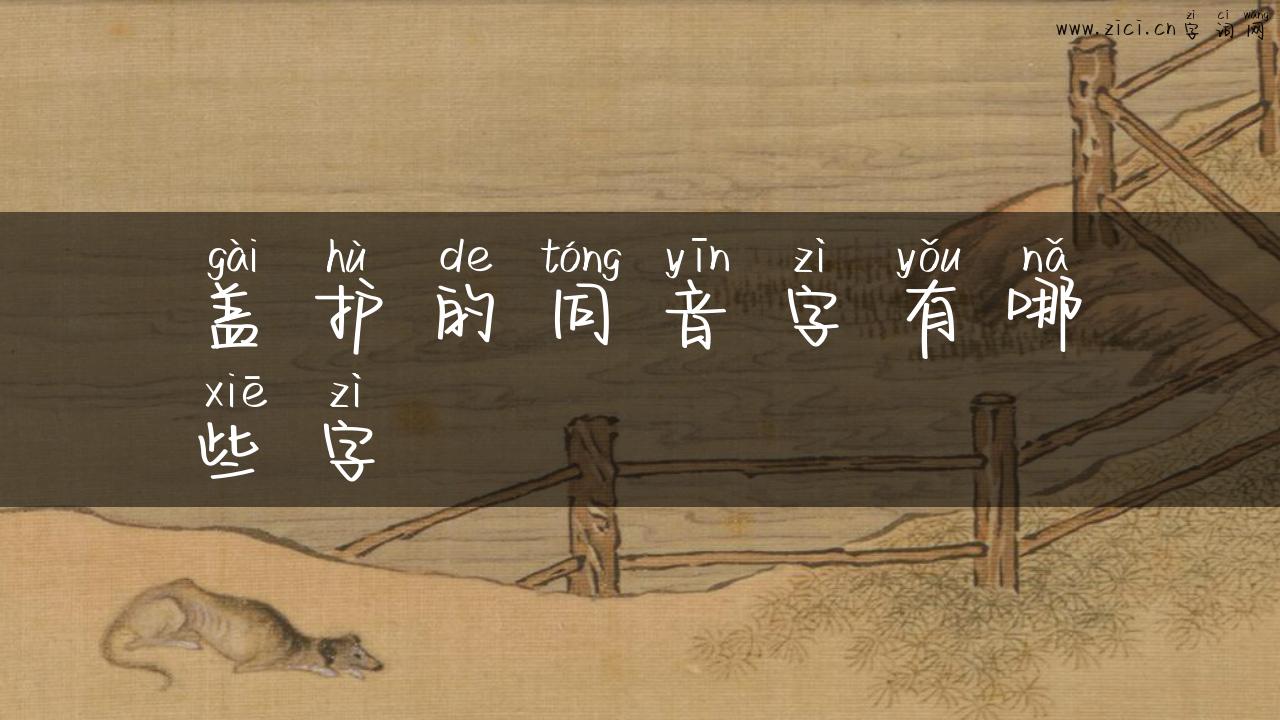 zì cí wǎng
www.zici.cn 字词网
gài hù de tóng yīn zì yǒu nǎ
盖护的同音字有哪
xiē zì
些字